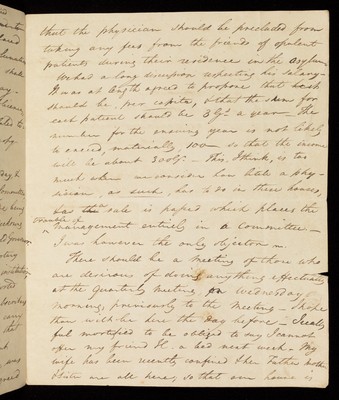 that the physician should be precluded from
taking any fees from the friends of opulent
patients during their residence in the asylum
What a long discussion respecting his salary
It was at length agreed to propose that
should be, per capita, & that the sum for
each patient should be 3 Gs a year — The
number for the ensuing year is not likely
to exceed, materially, 100 — so that the income
will be about 300 Gs. — This, I think, is too
much when we consider how little a phy-
sician, as such, has to do in these houses,
has that rule is passed which places the
management entirely in a committee —
I was however the only objector —
There should be a meeting of those who
are desirous of doing anything effectual
at the Quarterly Meeting, on Wednesday
morning, previously to the Meeting — I hope
thou wilt be here the day before — I really
feel mortified to be obliged to say I cannot
offer my friend H. a bed next week — My
wife has been recently confined & her Father, Mother
& Sister are all here, so that our house is